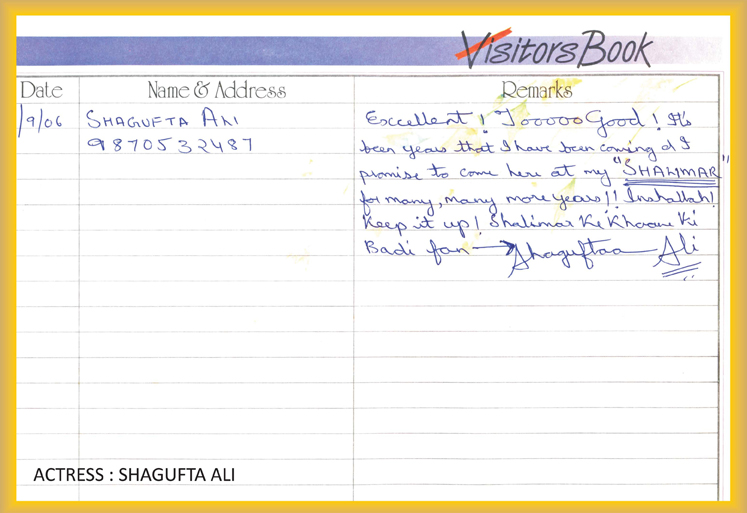 Visitors Book
Date Name & Address Remarks
/9/06 SHAGUFTA ALI Excellent! Tooooo Good! It's
9870532487 been years that I have been coming & I
promise to come here at my "SHALIMAR"
for many, many more years!! Inshallah!
Keep it up! Shalimar Ke Khaane Ki
Badi fan → Shaguftaa Ali
ACTRESS : SHAGUFTA ALI